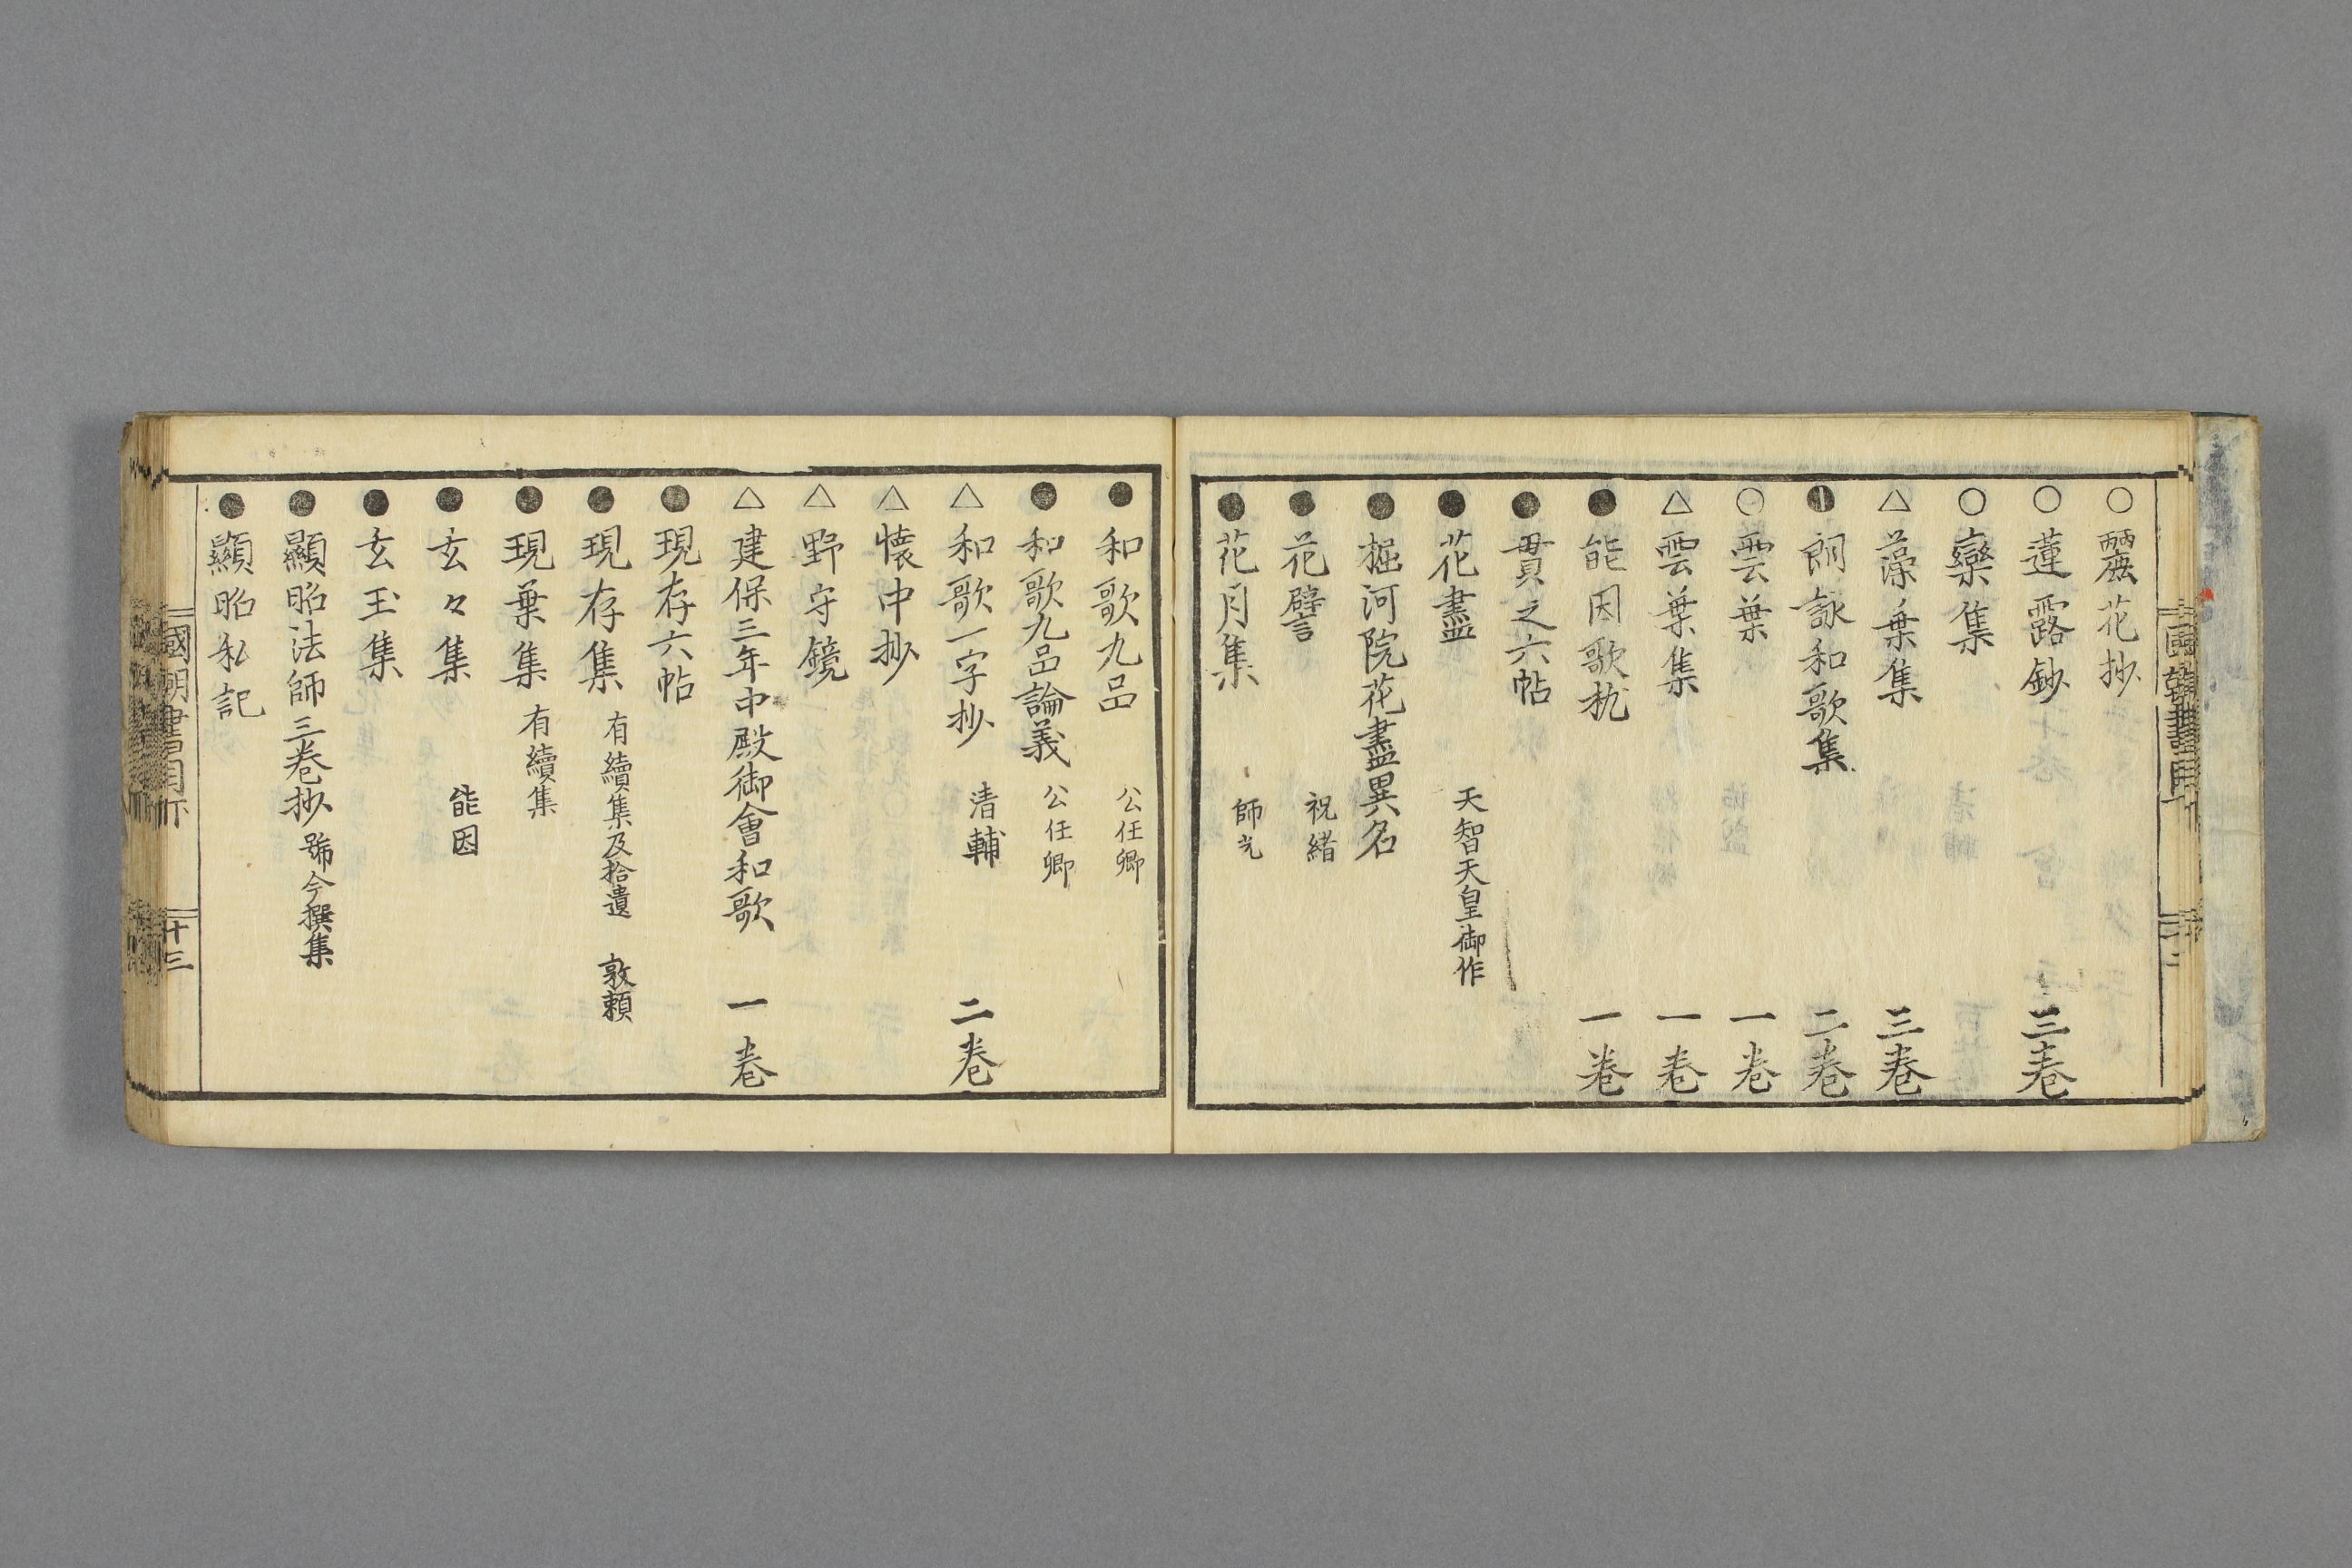 ○麗花抄
○蓮露鈔 三卷
○欒集
△藻葉集 三卷
●朗詠和歌集 二卷
○雲葉 一卷
△雲葉集 一卷
●能因歌枕 一卷
●貫之六帖
●花盡 天智天皇御作
●掘河院花盡異名
●花譬 祝緒
●花月集 師光
●和歌九品 公任卿
●和歌九品論義 公任卿
△和歌一字抄 清輔 二卷
△懷中抄
△野守鏡
△建保三年中殿御會和歌 一卷
●現存六帖
●現存集 有續集及拾遺 敦頼
●現葉集 有續集
●玄々集 能因
●玄玉集
●顯昭法師三卷抄 號今撰集
●顯昭私記
國朝書目下 十三